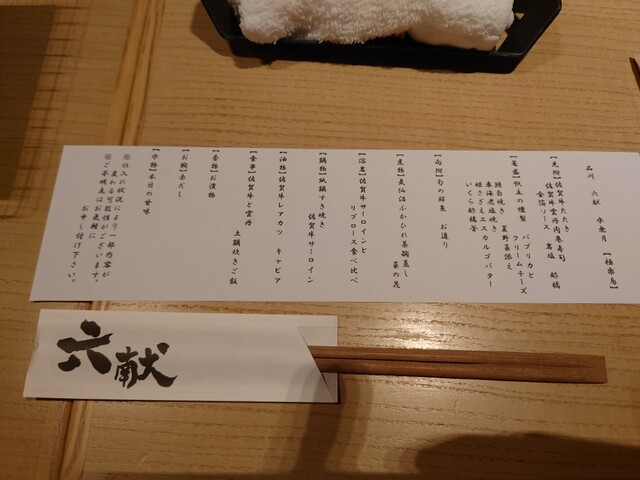 品川 六献 水無月 【極楽鳥】
【先附】佐賀牛たたき
佐賀牛雲丹肉巻寿司
金箔ソース 岩塩 酢橘
【菫盛】帆立の燻製 パプリカと
クリームチーズ
鱧白焼き 夏野菜添え
車海老塩焼き
姫さざえエスカルゴバター
いくら酢橘釜
【向附】旬の鮮魚 お造り
【煮物】気仙沼ふかひれ茶碗蒸し
菜の花
【溶岩】佐賀牛サーロインと
リブロース食べ比べ
【鍋物】紙鍋すき焼き
佐賀牛サーロイン
【油物】佐賀牛レアカツ キャビア
【食事】佐賀牛と雲丹
土鍋炊きご飯
【香物】お漬物
【お椀】赤だし
【水物】本日の甘味
※仕入れ状況により一部内容が
変わる可能性がございます。
※ご不明点はお気軽に
お申し付け下さい。
六献